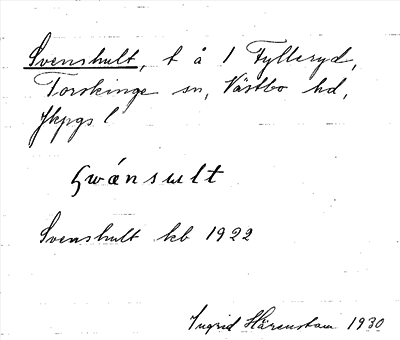 Svenshult, t å 1 Fylleryd,
Torskinge sn, Västbo hd,
Jkpgs l
Svenshult kb 1922
Ingrid Härenstam 1930